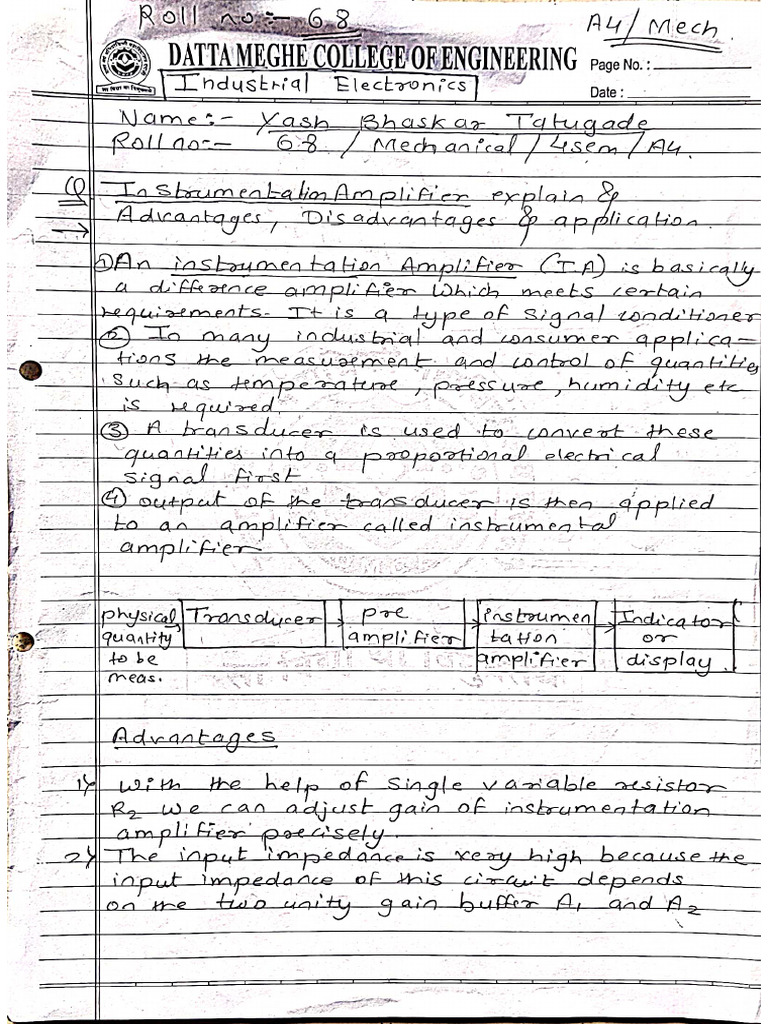 Roll no:- 68
A4/Mech.
DATTA MEGHE COLLEGE OF ENGINEERING
Page No. :
Industrial Electronics
Date :
Name:- Yash Bhaskar Tatugade
Roll no:- 68 / Mechanical / 4sem / A4.
Q Instrumentation Amplifier explain &
→ Advantages, Disadvantages & application.
① An instrumentation Amplifier (I.A) is basically
a difference amplifier which meets certain
requirements. It is a type of signal conditioner
② In many industrial and consumer applica-
tions the measurement and control of quantities
such as temperature, pressure, humidity etc
is required.
③ A transducer is used to convert these
quantities into a proportional electrical
signal first
④ output of the transducer is then applied
to an amplifier called instrumental
amplifier
physical quantity to be meas. → Transducer → pre amplifier → instrumen tation amplifier → Indicator or display
Advantages
1) With the help of single variable resistor
R2 we can adjust gain of instrumentation
amplifier precisely.
2) The input impedance is very high because the
input impedance of this circuit depends
on the two unity gain buffer A1 and A2